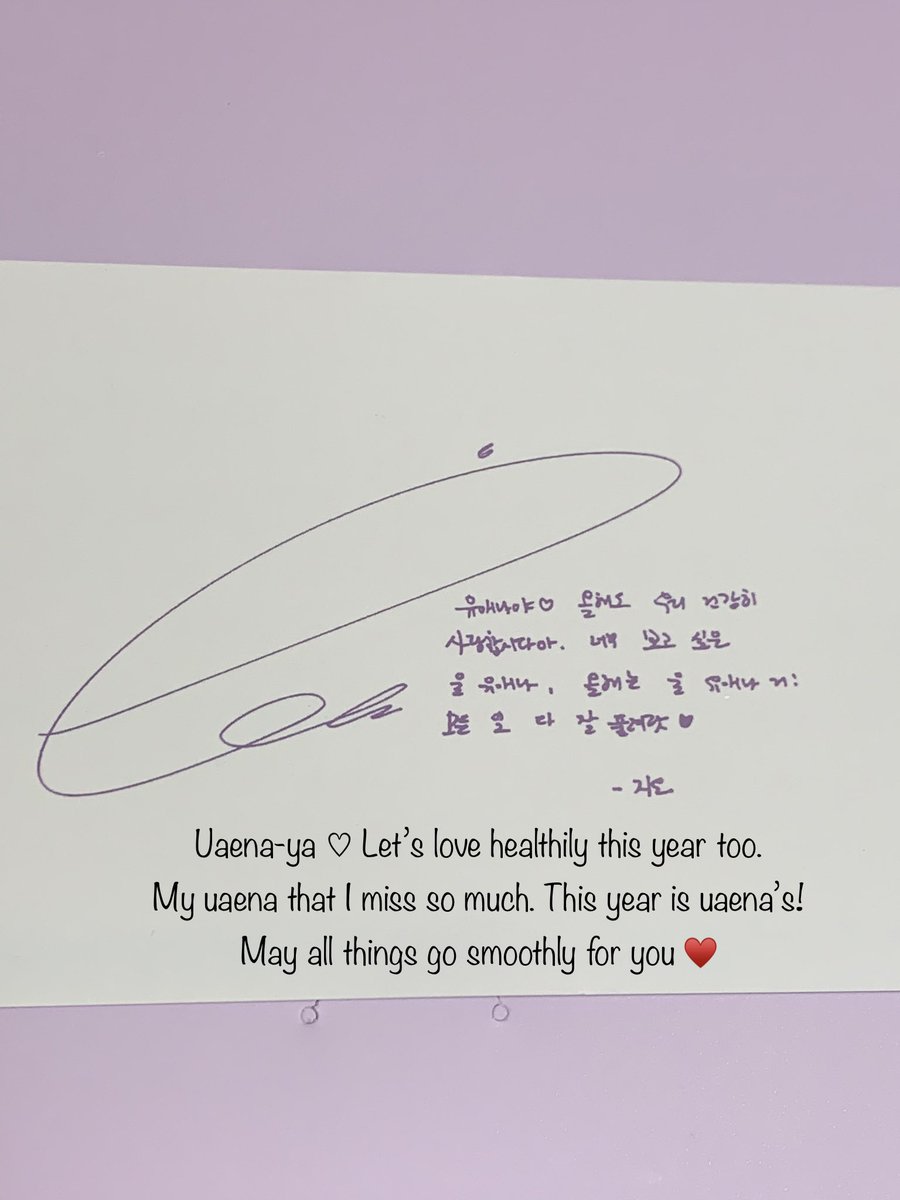 유애나야♡ 올해도 우리 건강히
사랑합시다아. 너무 보고 싶은
울 유애나, 올해는 울 유애나 거!
모든 일 다 잘 풀려랏♥
- 지은
Uaena-ya ♡ Let's love healthily this year too.
My uaena that I miss so much. This year is uaena's!
May all things go smoothly for you ♥️